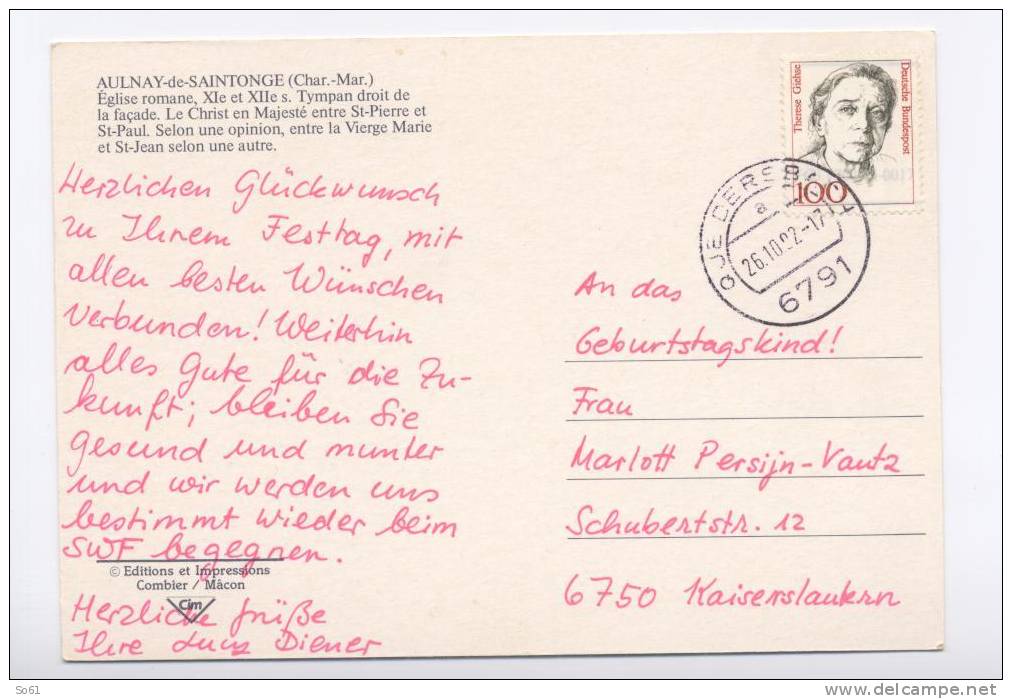 AULNAY-de-SAINTONGE (Char.-Mar.)
Église romane, XIe et XIIe s. Tympan droit de
la façade. Le Christ en Majesté entre St-Pierre et
St-Paul. Selon une opinion, entre la Vierge Marie
et St-Jean selon une autre.
Herzlichen Glückwunsch
zu Ihrem Festtag, mit
allen besten Wünschen
verbunden! Weiterhin
alles Gute für die Zu-
kunft; bleiben Sie
gesund und munter
und wir werden uns
bestimmt wieder beim
SWF begegnen.
© Editions et Impressions
Combier / Mâcon
Cim
Herzliche Grüße
Ihre Diener
Therese Giehse
Deutsche Bundespost
100
26.10.92-17
6791
An das
Geburtstagskind!
Frau
Marlott Persijn-Vautz
Schubertstr. 12
6750 Kaiserslautern
So61
delcampe.net